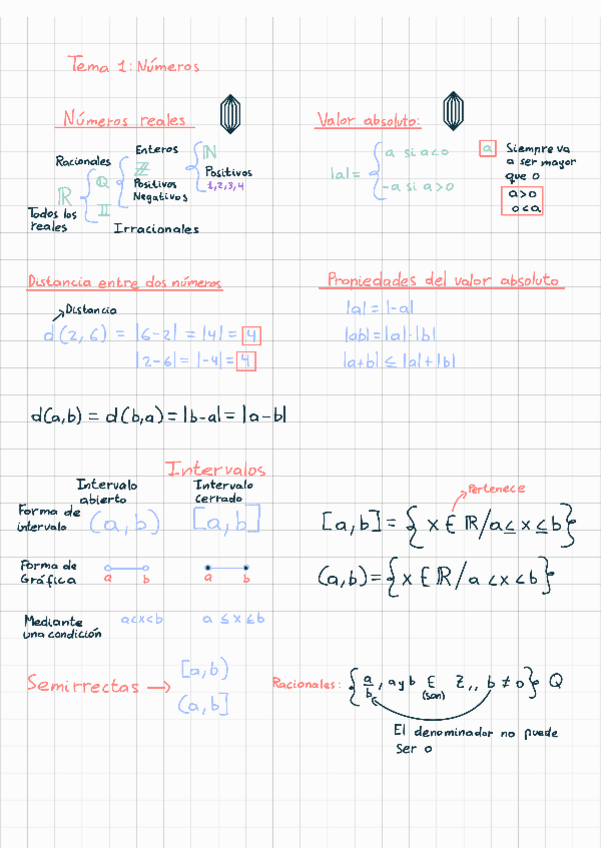 Tema 1: Números
Números reales
Racionales
Enteros
ℕ
ℤ
ℚ
Positivos
1,2,3,4
Positivos
Negativos
ℝ
𝕀
Todos los
reales
Irracionales
Valor absoluto:
|a| =
a si a<0
-a si a>0
a
Siempre va
a ser mayor
que 0
a>0
0<a
Distancia entre dos números
Distancia
d(2,6) = |6-2| = |4| = 4
|2-6| = |-4| = 4
d(a,b) = d(b,a) = |b-a| = |a-b|
Propiedades del valor absoluto
|a| = |-a|
|ab| = |a|·|b|
|a+b| ≤ |a|+|b|
Intervalos
Intervalo
abierto
Intervalo
cerrado
Forma de
intervalo
(a,b)
[a,b]
Forma de
Gráfica
a b
a b
Mediante
una condición
a<x<b
a ≤ x ≤ b
Pertenece
[a,b] = { x ∈ ℝ/a ≤ x ≤ b}
(a,b) = { x ∈ ℝ/ a < x < b}
Semirrectas →
[a,b)
(a,b]
Racionales: { a/b, a y b ∈ Z,, b ≠ 0} Q
(son)
El denominador no puede
ser 0